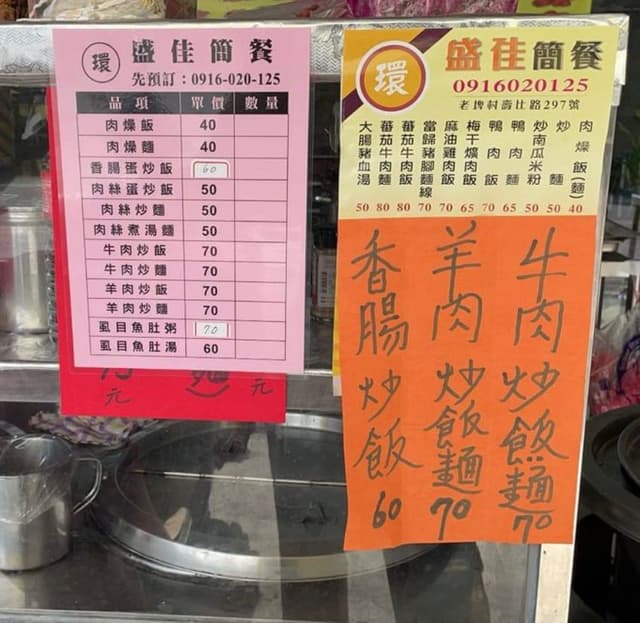 環
盛佳簡餐
先預訂：0916-020-125
品項 單價 數量
肉燥飯 40
肉燥麵 40
香腸蛋炒飯 60
肉絲蛋炒飯 50
肉絲炒麵 50
肉絲煮湯麵 50
牛肉炒飯 70
牛肉炒麵 70
羊肉炒飯 70
羊肉炒麵 70
虱目魚肚粥 70
虱目魚肚湯 60
元
元
環
盛佳簡餐
0916020125
老埤村壽比路297號
肉燥飯(麵) 40
炒麵 50
炒南瓜米粉 50
鴨肉麵 65
鴨肉飯 70
梅干爌肉飯 65
麻油雞肉飯 70
當歸豬腳麵線 70
蕃茄牛肉飯 80
蕃茄牛肉麵 80
大腸豬血湯 50
牛肉炒飯麵70
羊肉炒飯麵70
香腸炒飯60